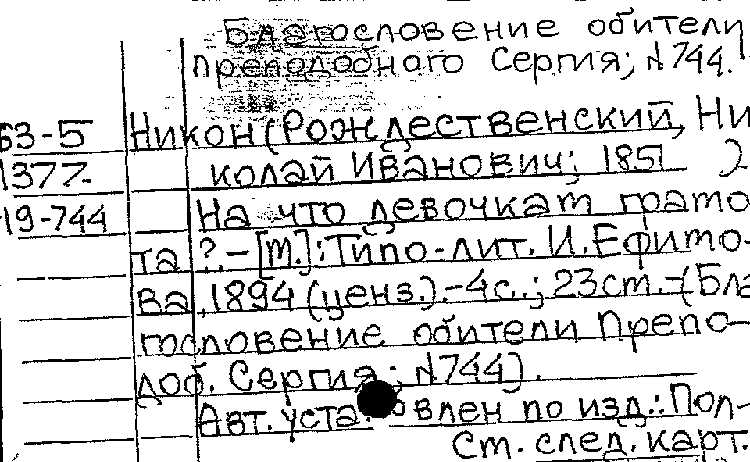 Благословение обители
преподобного Сергия; №744.
63-5 Никон (Рождественский, Ни
1377- колай Иванович; 1851 2
19-744 На что девочкам грамо
та ?. - [М.]: Типо-лит. И. Ефимо-
ва, 1894 (ценз.). - 4с.; 23см. - (Бла
гословение обители Препо-
доб. Сергия; №744).
Авт. уста овлен по изд.: Пол-
См. след. карт.